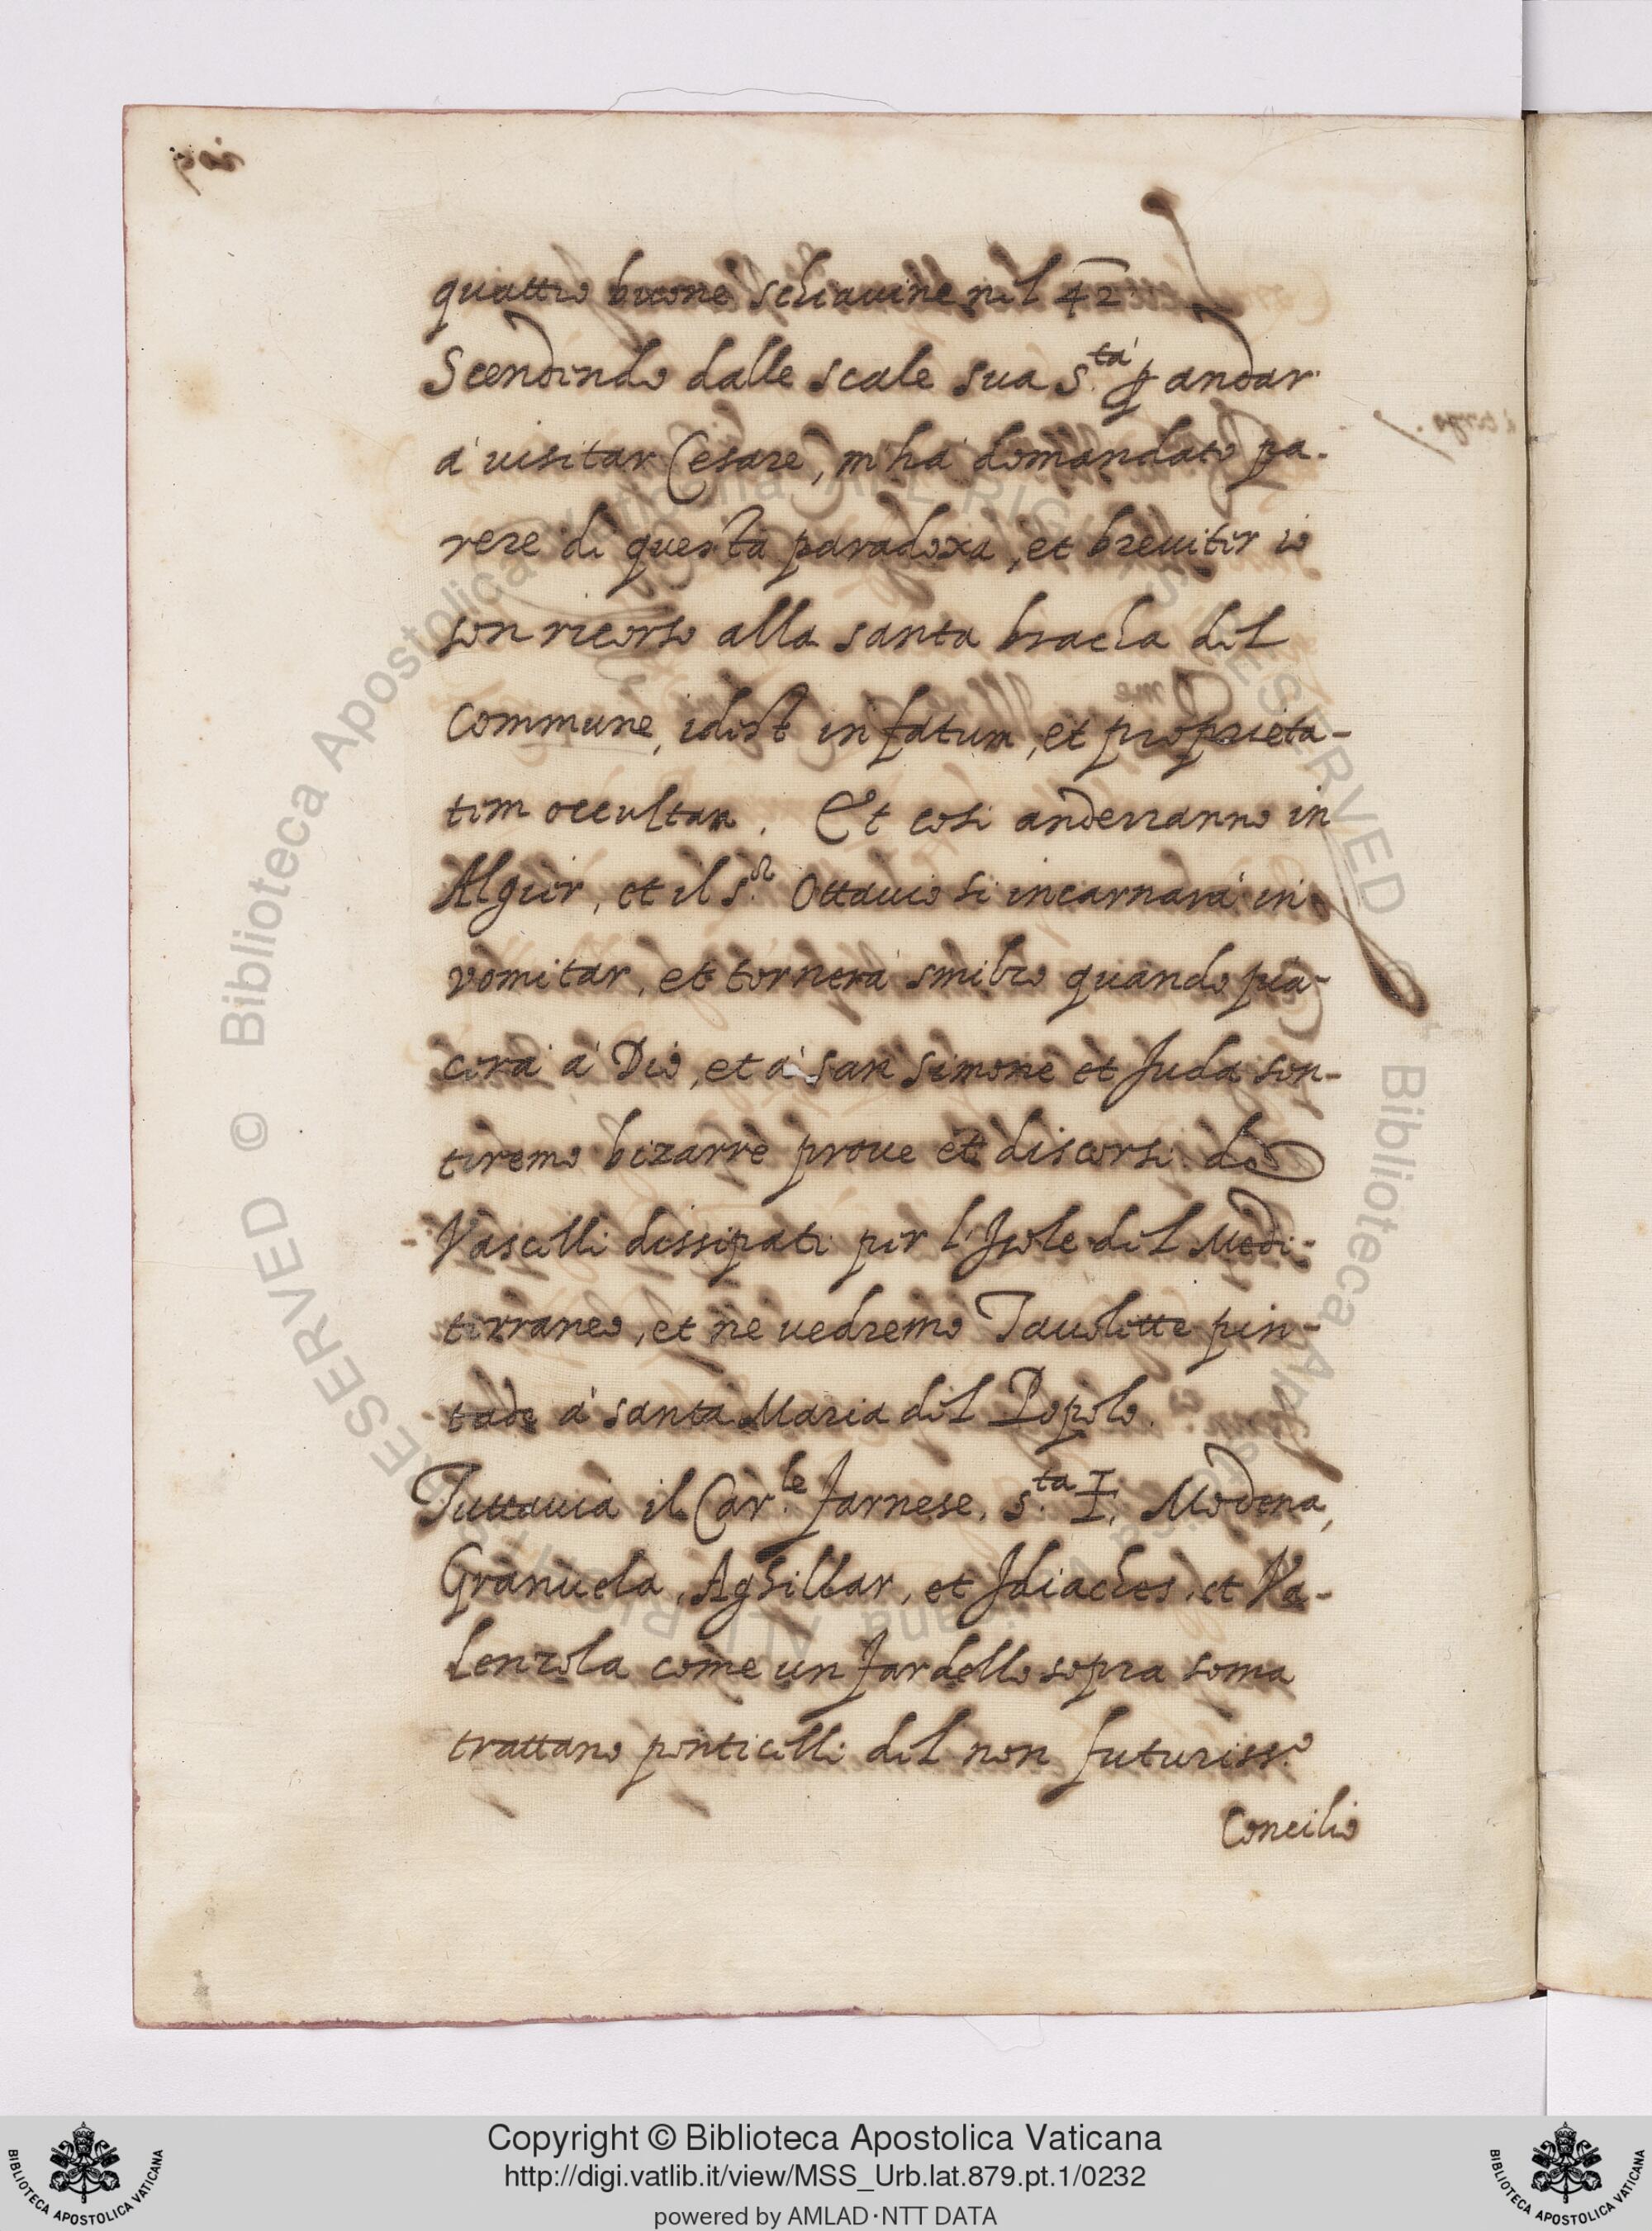 quattro buone schiauine nel 42
Scendendo dalle scale sua S.tà p andar
à uisitar Cesare, m'hà domandato pa-
rere di questa paradoxa, et breuiter io
son ricorso alla santa bracha del
Commune, idest in fatum, et proprieta-
tem occultam. Et cosi anderranno in
Algier, et il s.r Ottauio si incarnarà in
vomitar, et tornerà smilzo quando pia-
cerà à Dio, et à san Simone et Juda sen-
tiremo bizarre proue et discorsi de
Vascelli dissipati per l'Isole del Medi-
terraneo, et ne uedremo Tauolette pin-
tade à santa Maria del Popolo.
Tuttauia il Car.le Farnese, S.ta I, Modena,
Granuela, Aghillar, et Idiaches, et Va-
lenzola come un fardello sopra soma
trattano ponticelli del non futuriss.o
Concilio
Copyright © Biblioteca Apostolica Vaticana
http://digi.vatlib.it/view/MSS_Urb.lat.879.pt.1/0232
powered by AMLAD·NTT DATA